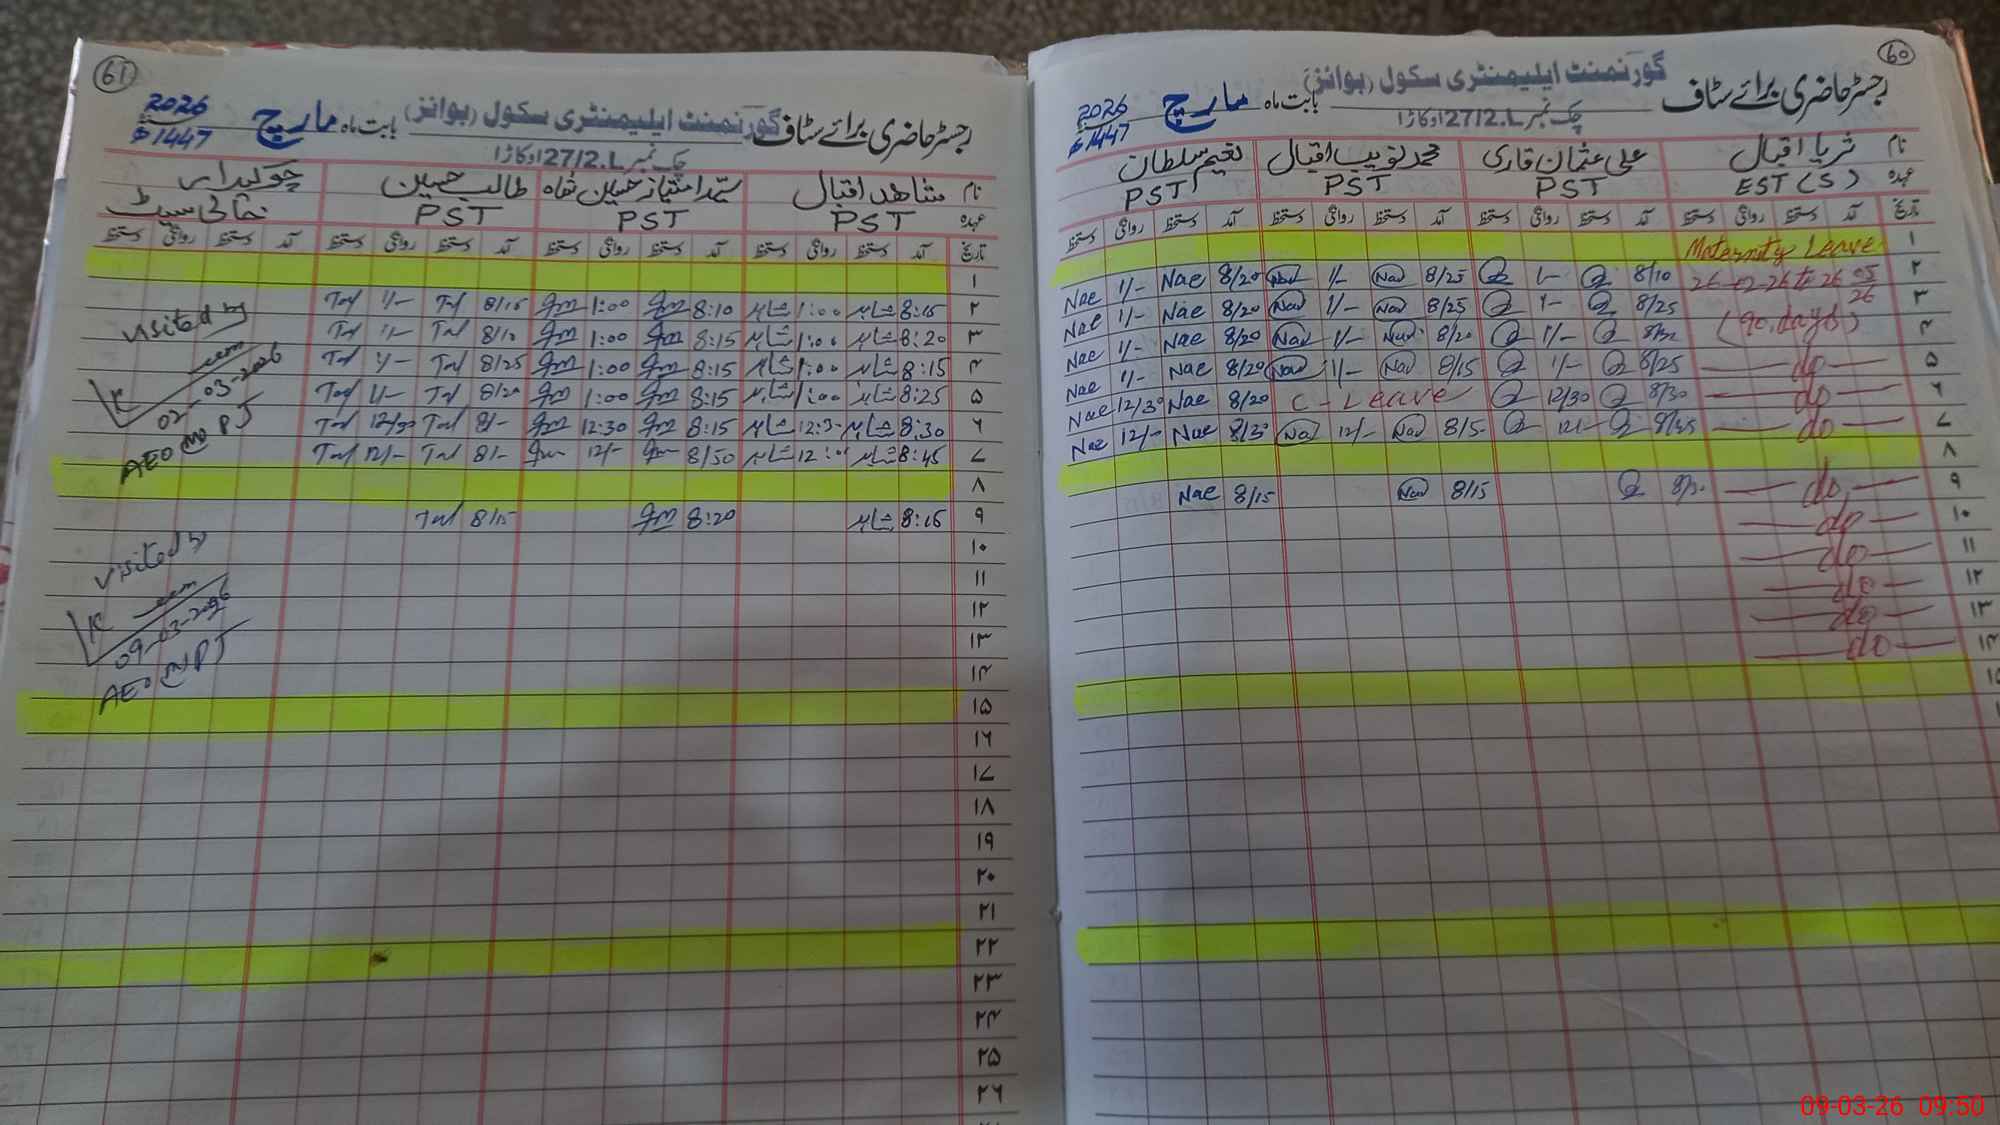 61
رجسٹر حاضری برائے سٹاف گورنمنٹ ایلیمنٹری سکول (بوائز) بابت ماہ مارچ 2026
1447ھ
چک نمبر 27/2.L اوکاڑا
نام شاھد اقبال سید امتیاز حسین شاہ طالب حسین چوکیدار
عہدہ PST PST PST خالی سیٹ
تاریخ آمد دستخط روانگی دستخط آمد دستخط روانگی دستخط آمد دستخط روانگی دستخط آمد دستخط روانگی دستخط
۱
۲ 8:15 شاہد 1:00 شاہد 8:10 1:00 8/15 Tal 1/- Tal
۳ 8:20 شاہد 1:00 شاہد 8:15 1:00 8/10 Tal 1/- Tal
۴ 8:15 شاہد 1:00 شاہد 8:15 1:00 8/25 Tal 1/- Tal
۵ 8:25 شاہد 1:00 شاہد 8:15 1:00 8/20 Tal 1/- Tal
۶ 8:30 شاہد 12:30 شاہد 8:15 12:30 8/- Tal 12/30 Tal
۷ 8:45 شاہد 12:00 شاہد 8/50 12/- 8/- Tal 12/- Tal
۸
۹ 8:15 شاہد 8:20 8/15 Tal
۱۰
۱۱
۱۲
۱۳
۱۴
۱۵
۱۶
۱۷
۱۸
۱۹
۲۰
۲۱
۲۲
۲۳
۲۴
۲۵
۲۶
visited by
02-03-2026
AEO PJ
visited by
09-03-2026
AEO PJ
60
رجسٹر حاضری برائے سٹاف گورنمنٹ ایلیمنٹری سکول (بوائز) بابت ماہ مارچ 2026
1447ھ
چک نمبر 27/2.L اوکاڑا
نام ثریا اقبال علی عثمان قادری محمد نویب اقبال نعیم سلطان
عہدہ EST (S) PST PST PST
تاریخ آمد دستخط روانگی دستخط آمد دستخط روانگی دستخط آمد دستخط روانگی دستخط آمد دستخط روانگی دستخط
۱ Maternity Leave
۲ 26-02-26 to 26 05/26 8/10 1- 8/25 Naw 1/- Naw 8/20 Nae 1/- Nae
۳ (90, days) 8/25 1- 8/25 Naw 1/- Naw 8/20 Nae 1/- Nae
۴ 8/30 1/- 8/20 Naw 1/- Naw 8/20 Nae 1/- Nae
۵ do 8/25 1/- 8/15 Naw 1/- Naw 8/20 Nae 1/- Nae
۶ do 8/30 12/30 C-Leave 8/20 Nae 12/30 Nae
۷ do 8/45 12/- 8/5 Naw 12/- Naw 8/30 Nae 12/- Nae
۸
۹ do 8/30 8/15 Naw 8/15 Nae
۱۰ do
۱۱ do
۱۲ do
۱۳ do
۱۴ do
۱۵
09-03-26 09:50